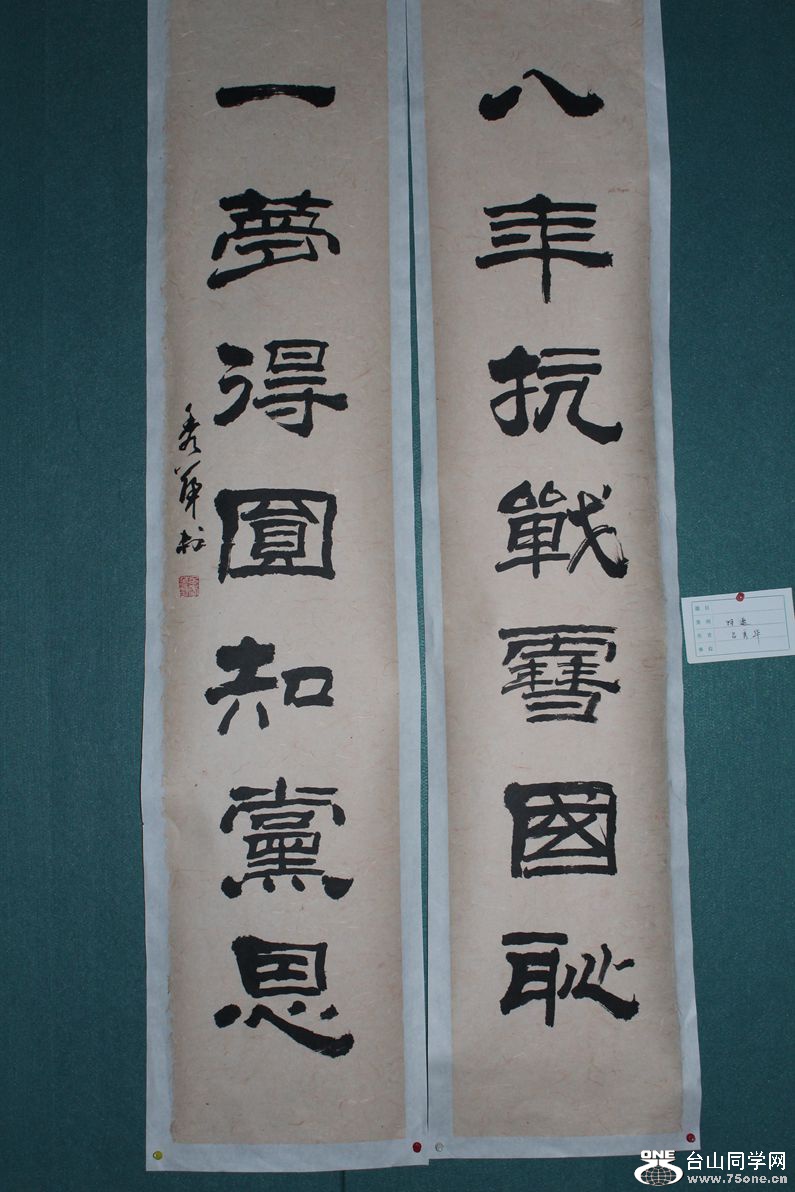 八年抗戰雪國恥
一夢得圓知黨恩
秀華書
吕秀华
ONE
台山同学网
www.75one.cn